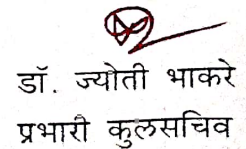 डॉ. ज्योती भाकरे
प्रभारी कुलसचिव